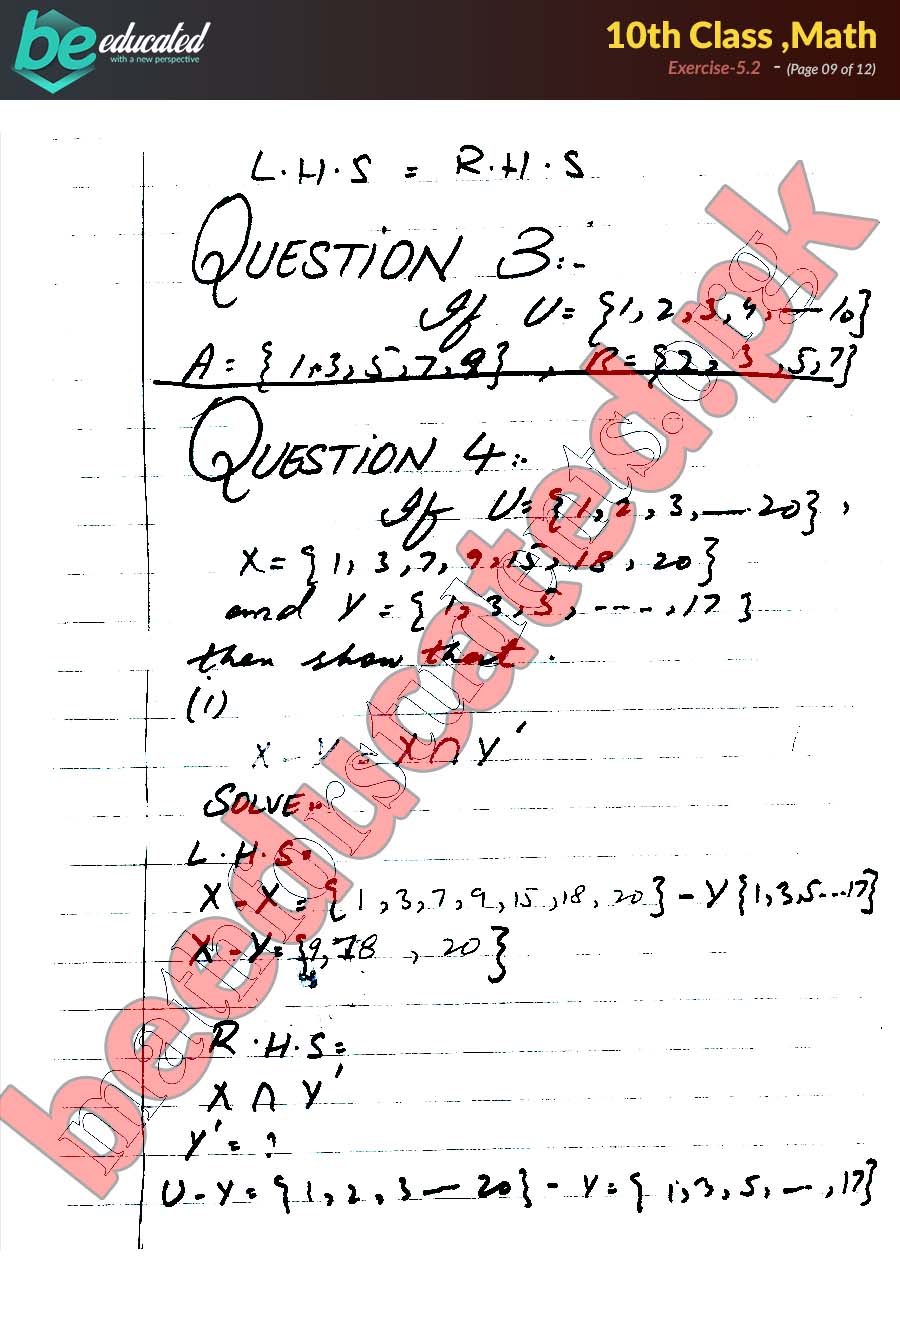 be educated
with a new perspective
10th Class ,Math
Exercise-5.2 - (Page 09 of 12)
L.H.S = R.H.S
QUESTION 3:-
If U= {1, 2, 3, 4, — 10}
A= {1, 3, 5, 7, 9} , B= {2, 3, 5, 7}
QUESTION 4:-
If U= {1, 2, 3, — 20} ,
X= {1, 3, 7, 9, 15, 18, 20}
and Y= {1, 3, 5, ----, 17}
then show that .
(i)
X - Y = X ∩ Y'
SOLVE:-
L.H.S=
X - Y = {1, 3, 7, 9, 15, 18, 20} - Y{1, 3, 5...17}
X - Y = {9, 18 , 20}
R.H.S=
X ∩ Y'
Y' = ?
U - Y= {1, 2, 3 — 20} - Y= {1, 3, 5, —, 17}
beeducated.pk